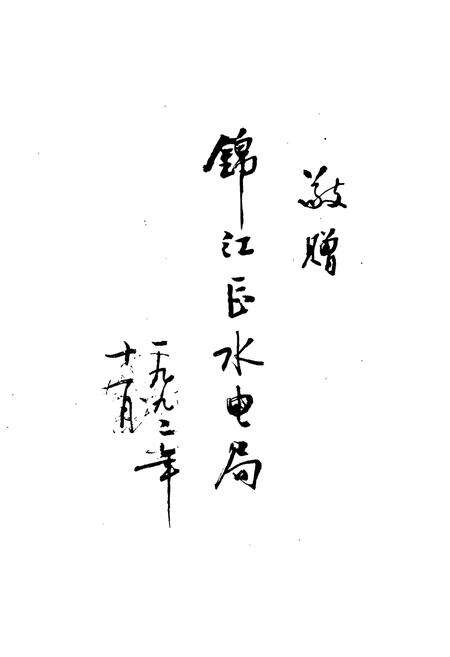 敬赠
錦江水电局
一九九二年
十一月